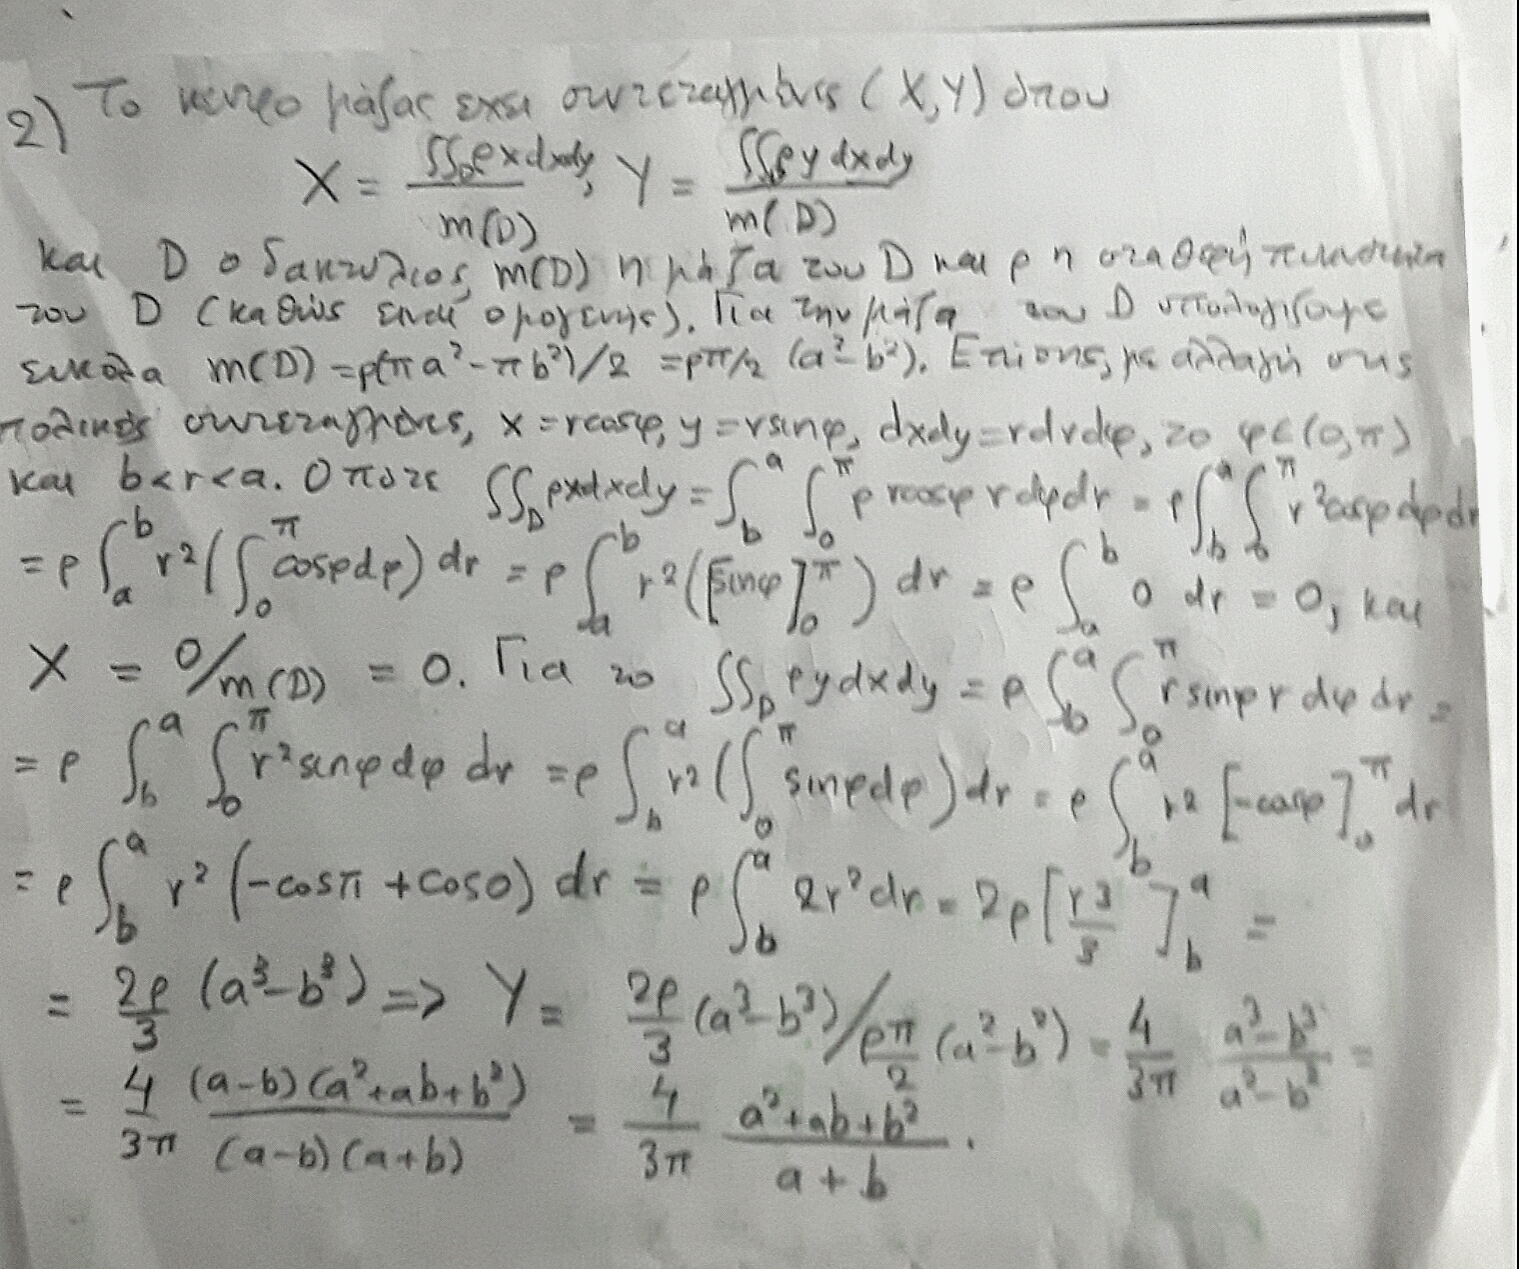 2) Το κέντρο μάζας έχει συντεταγμένες (X,Y) όπου
X = ∫∫_D ρxdxdy / m(D), Y = ∫∫_D ρydxdy / m(D)
και D ο δακτύλιος, m(D) η μάζα του D και ρ η σταθερή πυκνότητα
του D (καθώς είναι ομογενής). Για την μάζα του D υπολογίζουμε
εύκολα m(D) = ρ(πa² - πb²)/2 = ρπ/2 (a² - b²). Επίσης, με αλλαγή στις
πολικές συντεταγμένες, x = rcosφ, y = rsinφ, dxdy = rdrdφ, το φ∈(0,π)
και b<r<a. Οπότε ∫∫_D ρxdxdy = ∫_b^a ∫_0^π ρ rcosφ r dφdr = ρ∫_b^a ∫_0^π r²cosφ dφdr
= ρ ∫_a^b r² (∫_0^π cosφdφ) dr = ρ ∫_a^b r² ([sinφ]_0^π) dr = ρ ∫_a^b 0 dr = 0, και
X = 0/m(D) = 0. Για το ∫∫_D ρydxdy = ρ ∫_b^a ∫_0^π r sinφ r dφ dr =
= ρ ∫_b^a ∫_0^π r² sinφ dφ dr = ρ ∫_b^a r² (∫_0^π sinφdφ) dr = ρ ∫_b^a r² [-cosφ]_0^π dr
= ρ ∫_b^a r² (-cosπ + cos0) dr = ρ ∫_b^a 2r² dr = 2ρ [r³/3]_b^a =
= 2ρ/3 (a³ - b³) => Y = 2ρ/3 (a³ - b³) / ρπ/2 (a² - b²) = 4/3π (a³ - b³)/(a² - b²) =
= 4/3π (a-b)(a²+ab+b²)/(a-b)(a+b) = 4/3π (a²+ab+b²)/(a+b).